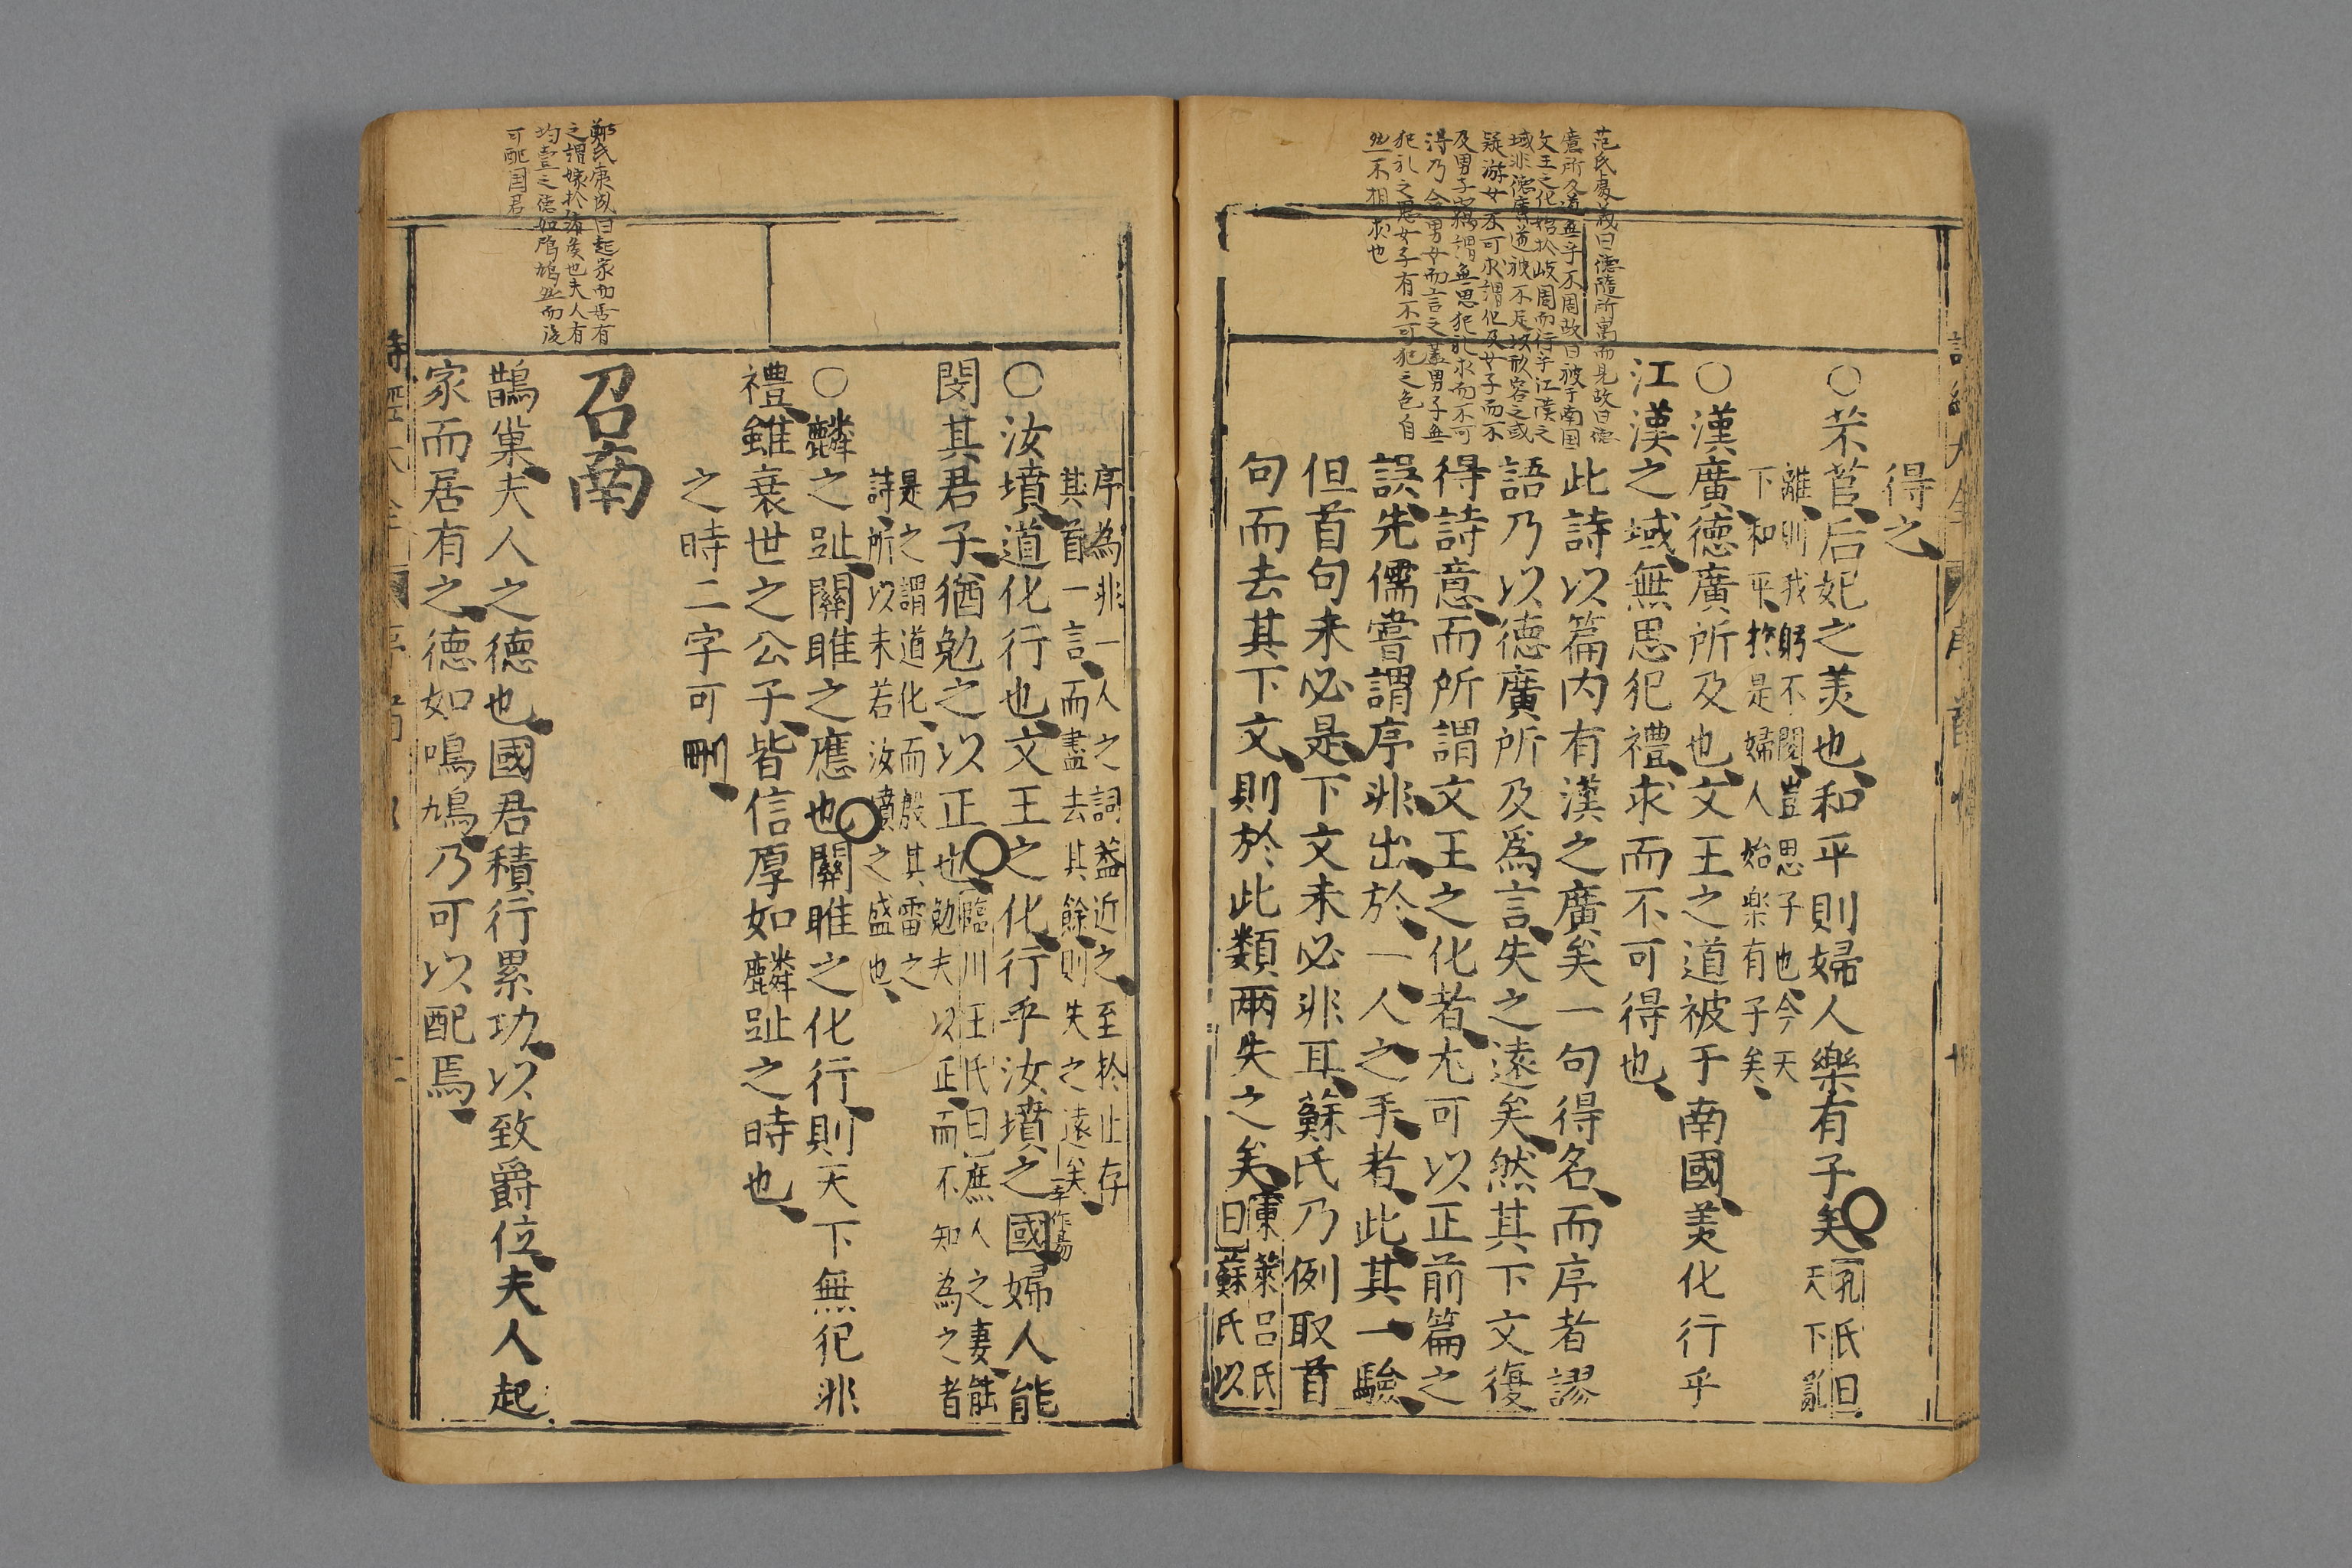 得之
○芣苢后妃之美也和平則婦人樂有子矣孔氏曰天下亂
離則我躬不閱豈思子也今天
下和平於是婦人始楽有子矣
○漢廣德廣所及也文王之道被于南國美化行乎
江漢之域無思犯禮求而不可得也
此詩以篇内有漢之廣矣一句得名而序者謬
語乃以德廣所及爲言失之遠矣然其下文復
得詩意而所謂文王之化者尤可以正前篇之
誤先儒嘗謂序非出於一人之手者此其一驗
但首句未必是下文未必非耳蘇氏乃例取首
句而去其下文則於此類兩失之矣東萊呂氏曰蘇氏以
范氏處義曰德隨所寓而見故曰德
廣所及道無乎不周故曰被于南国
文王之化始於岐周而行乎江漢之
域非德廣道被不足以形容之或
疑游女不可求謂但及女子而不
及男子窃謂無思犯礼求而不可
得乃合男女而言之蓋男子無
犯礼之思女子有不可犯之色自
然不相求也
序為非一人之詞蓋近之至於止存
其首一言而盡去其餘則失之遠矣
○汝墳道化行也文王之化行乎汝墳之國婦人能
閔其君子猶勉之以正也臨川王氏曰庶人之妻能勉夫以正而不知為之者
是之謂道化而殷其雷之
詩所以未若汝墳之盛也
○麟之趾關雎之應也關雎之化行則天下無犯非
禮雖衰世之公子皆信厚如麟趾之時也
之時二字可刪
召南
鵲巢夫人之德也國君積行累功以致爵位夫人起
家而居有之德如鳲鳩乃可以配焉
鄭氏康成曰起家而居有
之謂嫁於諸侯也夫人有
均壹之德如鳲鳩然而後
可配国君